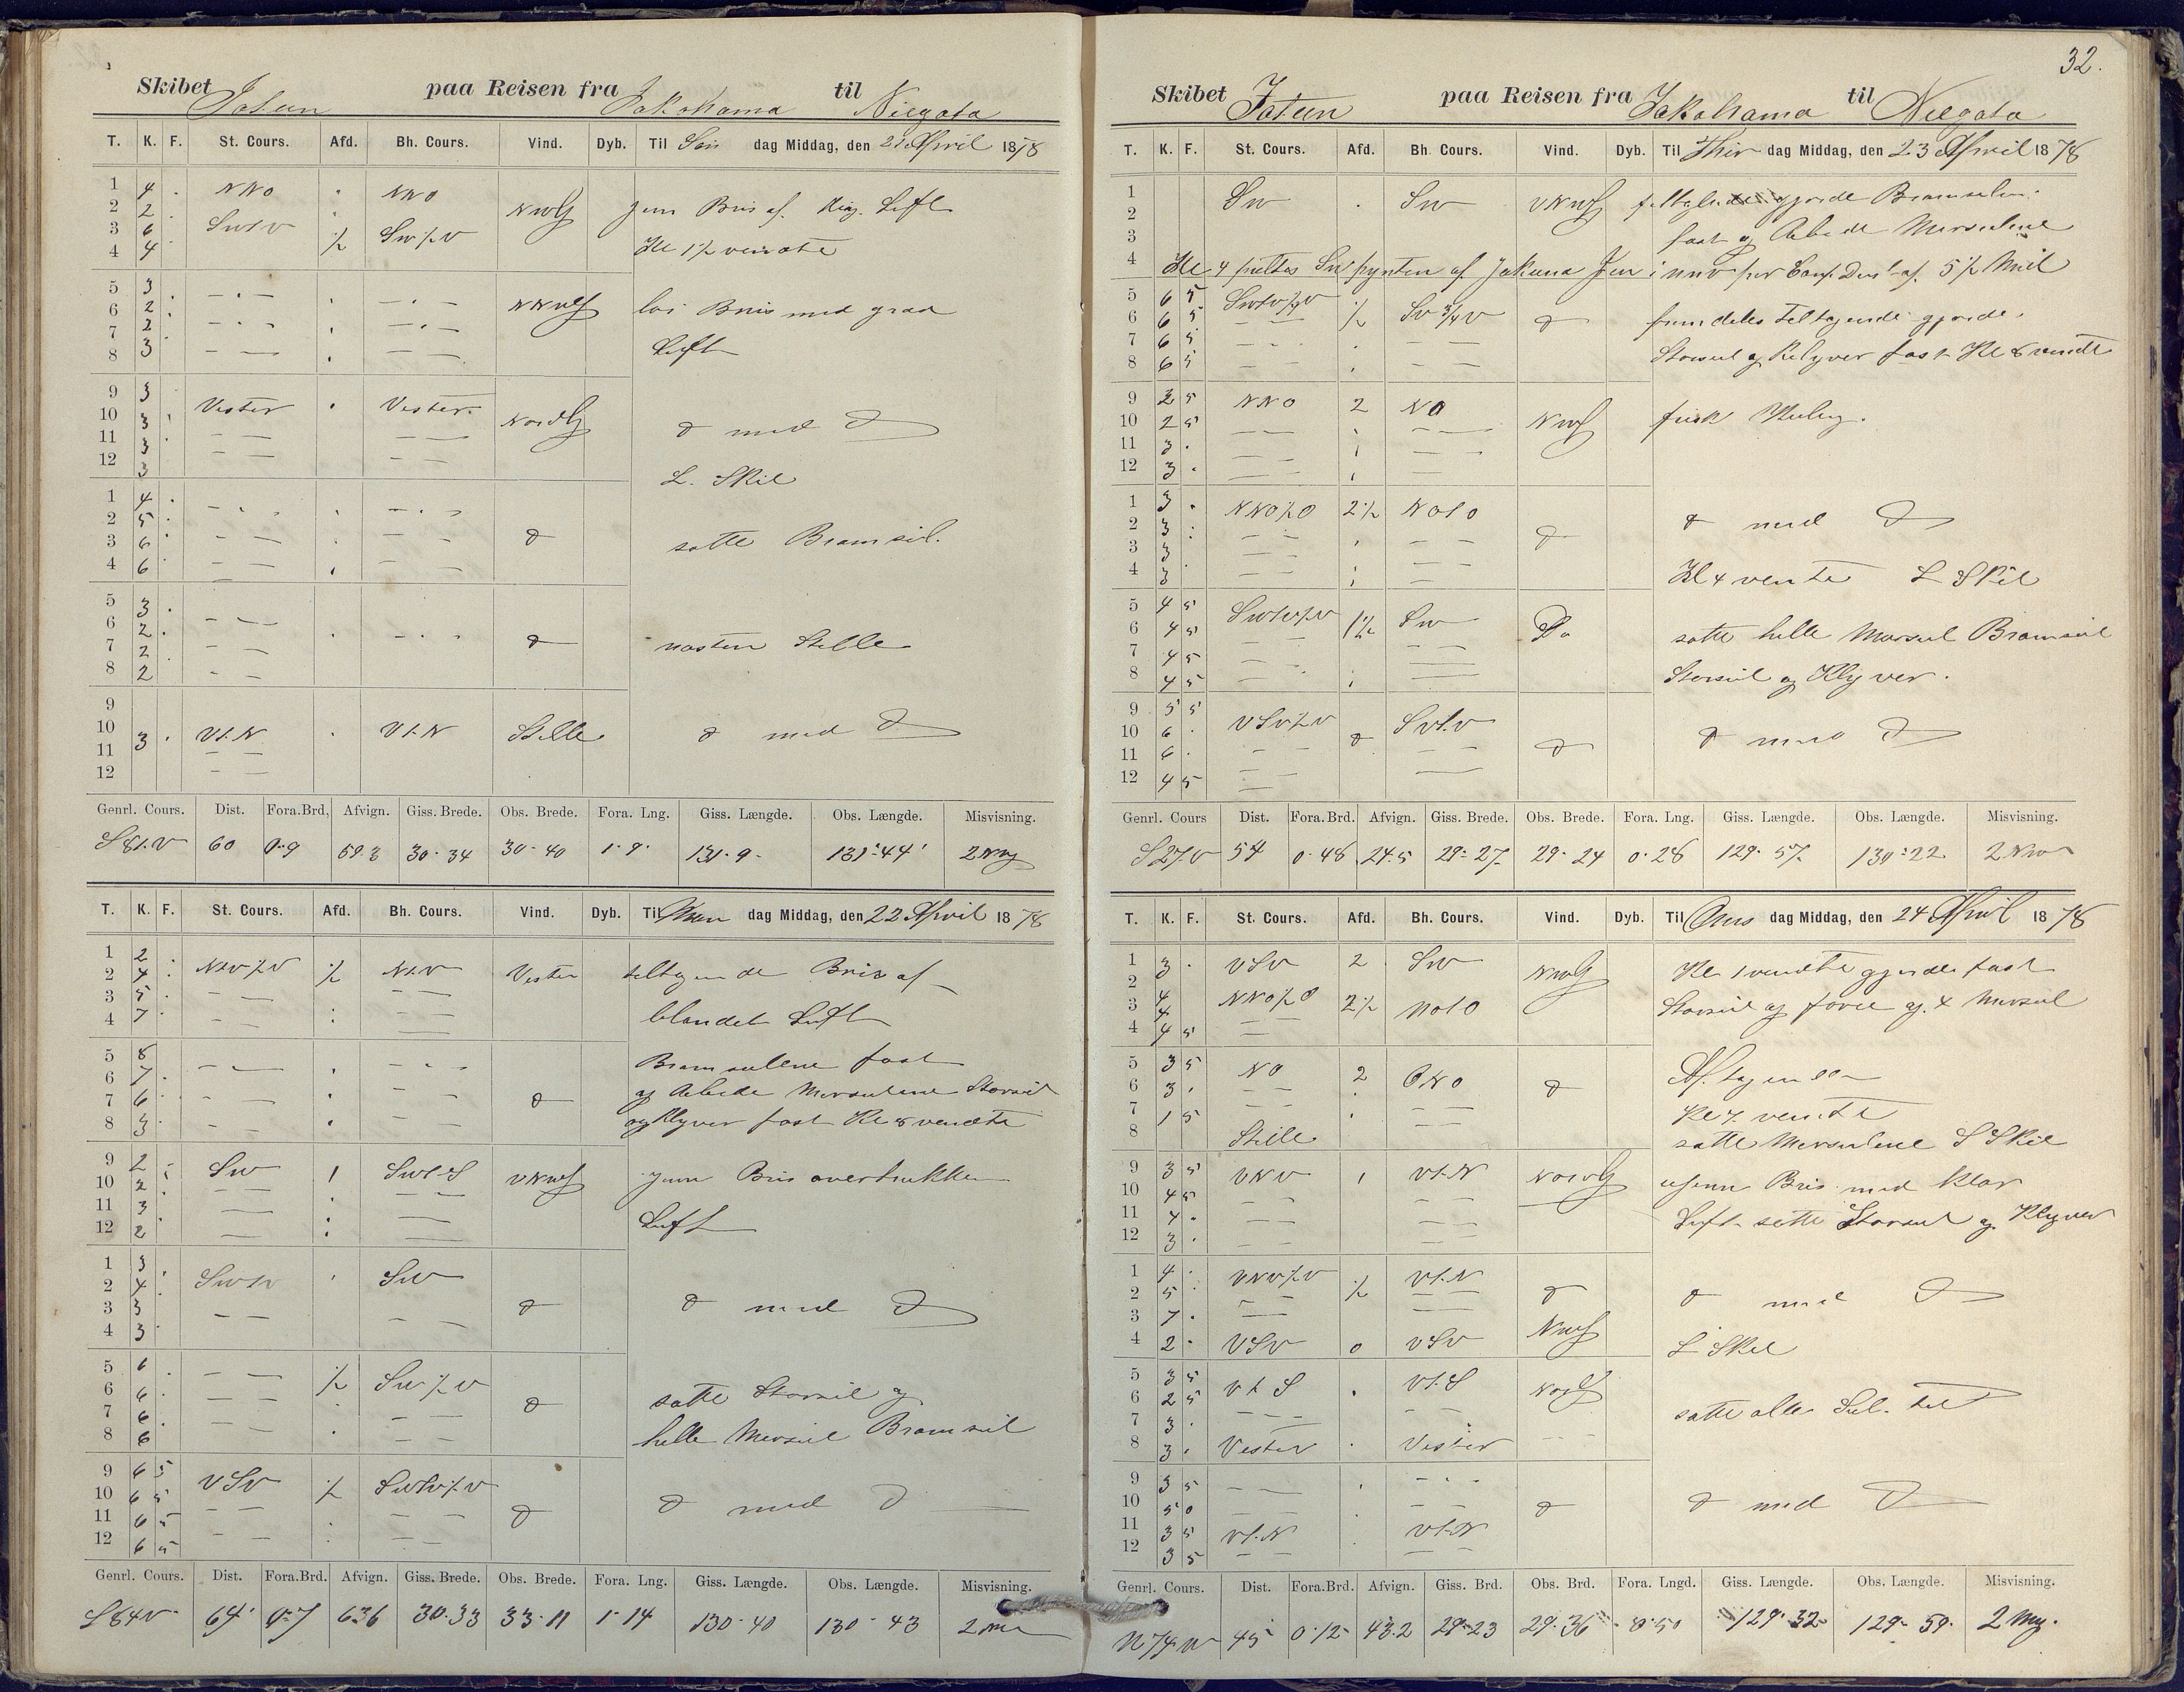 Skibet Jotun paa Reisen fra Jokohama til Niegata
T. K. F. St. Cours. Afd. Bh. Cours. Vind. Dyb. Til Søn dag Middag, den 21 April 1878
1 4 . NNO . NNO NWlg jevn Bris af. Luft
2 2
3 6 SWtV ½ SW½V
4 4 Kl 1½ vendte
5 3 NNWlg løi Bris med graa
6 2
7 2
8 3 Luft
9 3 Vester . Vester Nordlg d med d
10 3
11 3
12 3 L. Skil
1 4
2 5 d satte Bramseil.
3 6
4 6
5 3
6 2 d næsten Stille
7 2
8 2
9
10 3 . Vt.N . Vt.N Stille d med d
11
12
Genrl. Cours. Dist. Fora.Brd. Afvign. Giss. Brede. Obs. Brede. Fora. Lng. Giss. Længde. Obs. Længde. Misvisning.
S 81.V 60 0.9 59.3 30.34 30.40 1.9. 131.9. 131.44'
T. K. F. St. Cours. Afd. Bh. Cours. Vind. Dyb. Til Man dag Middag, den 22 April 1878
1 2
2 4 NtV½V ½ NtV Vester tiltagende Bris af
3 5
4 7 blandet Luft
5 8 Bramseilene fast
6 7
7 6 d og Mersseilene Storseil
8 3 og Klyver fast Kl 8 vendte
9 2 SW 1 SWtS VNWlg jevn Bris overtrukken
10 2
11 3
12 2 Luft
1 3
2 4 SWtV SW
3 3 d d med d
4 3
5 6 ½ SW½V
6 6 d satte Storseil og
7 6
8 6 hele Mersseil Bramseil
9 6 5 VSV ½ SWtV½V
10 6 5 d d med d
11 6 5
12 6 5
Genrl. Cours. Dist. Fora.Brd. Afvign. Giss. Brede. Obs. Brede. Fora. Lng. Giss. Længde. Obs. Længde. Misvisning.
S 84 V 64' 0.7 63.6 30.33 33.11 1.14 130.40 130.43
32.
Skibet Jotun paa Reisen fra Jokohama til Niegata
T. K. F. St. Cours. Afd. Bh. Cours. Vind. Dyb. Til Thir dag Middag, den 23 April 1878
1 SW . SW VNWlg gjorde Bramseilene
2
3 fast og Mersseilene
4 Kl 4 peiltes SW pynten af Jakuna Jen i NNV per Comp. Dist. af. 5½ Miil
5 6 5 SWtV½V ½ SV¾V
6 6 5 d fremdeles tiltagende gjorde
7 6 5
8 6 5 Storseil og Klyver fast Kl 8 vendte
9 2 5 NNO 2 NO NWlg frisk Kuling.
10 2 5
11 3 .
12 3 .
1 3 . NNO½O 2½ NOtO
2 3 d d med d
3 3
4 3 Kl 4 vendte L Skil
5 4 5 SWtV½V 1½ SW Do satte hele Mersseil Bramseil
6 4 5
7 4 5
8 4 5 Storseil og Klyver.
9 5 5
10 6 . VSV½V d SVt.V d d med d
11 6 .
12 4 5
Genrl. Cours Dist. Fora.Brd. Afvign. Giss. Brede. Obs. Brede. Fora. Lng. Giss. Længde. Obs. Længde. Misvisning.
S 27.V 54 0.48 24.5 29.27 29.24 0.28 129.57 130.22
T. K. F. St. Cours. Afd. Bh. Cours. Vind. Dyb. Til Ons dag Middag, den 24 April 1878
1 3 . VSV 2 SW NWlg Kl 1 vendte gjorde fast
2
3 4 NNO½O 2½ NOtO Storseil og Mersseil
4 4 5
5 3 5 NO 2 ONO d Aftagende
6 3 .
7 1 5 Kl 7 vendte
8 Stille satte Mersseilene S Skil
9 3 5 VNV 1 Vt.N Nordlg Bris med klar
10 4 5
11 4 . Luft satte Storseil og Klyver
12 3 .
1 4 . VNV½V ½ Vt.N
2 5 d d med d
3 7 . NWlg
4 2 . VSV 0 VSV L Skil
5 3 5 Vt S . Vt.S Nordlg
6 2 5 satte alle Seil. til
7 3 .
8 3 . Vester . Vester
9 3 5
10 5 0 d d med d
11 3 5 Vt.N Vt.N
12 3 5
Genrl. Cours. Dist. Fora.Brd. Afvign. Giss. Brd. Obs. Brd. Fora. Lngd. Giss. Længde. Obs. Længde. Misvisning.
N 74 W 45 0.12 43.2 29.23 29.36 0.50 129.32 129.59.